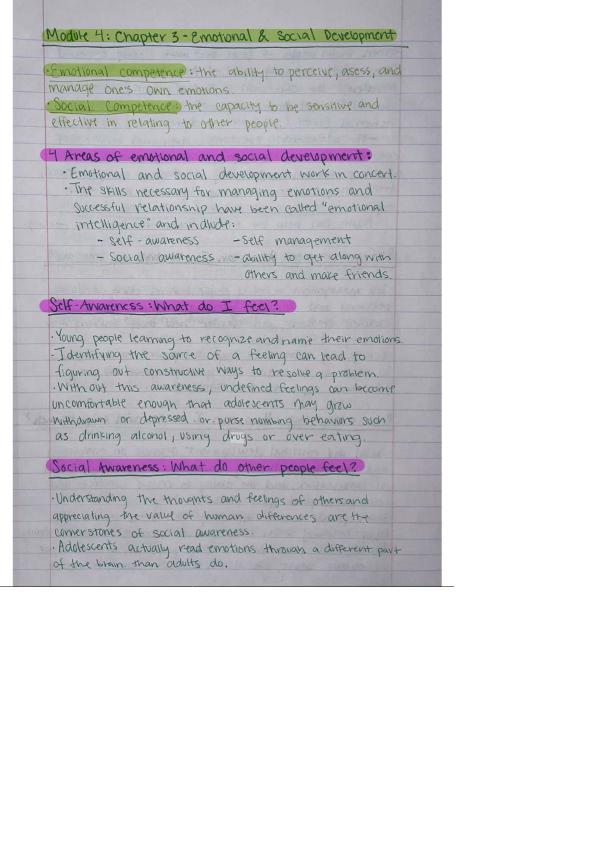 Module 4: Chapter 3 - Emotional & Social Development
· Emotional competence: the ability to perceive, asess, and
manage one's own emotions.
· Social Competence: the capacity to be sensitive and
effective in relating to other people.
4 Areas of emotional and social development:
· Emotional and social development work in concert.
· The skills necessary for managing emotions and
successful relationship have been called "emotional
intelligence" and include:
- self-awareness - self management
- social awareness - ability to get along with
others and make friends.
Self-Awareness: What do I feel?
· Young people learning to recognize and name their emotions.
· Identifying the source of a feeling can lead to
figuring out constructive ways to resolve a problem.
· Without this awareness, undefined feelings can become
uncomfortable enough that adolescents may grow
withdrawn or depressed or purse numbing behaviors such
as drinking alcohol, using drugs or over eating.
Social Awareness: What do other people feel?
· Understanding the thoughts and feelings of others and
appreciating the value of human differences are the
cornerstones of social awareness.
· Adolescents actually read emotions through a different part
of the brain than adults do.